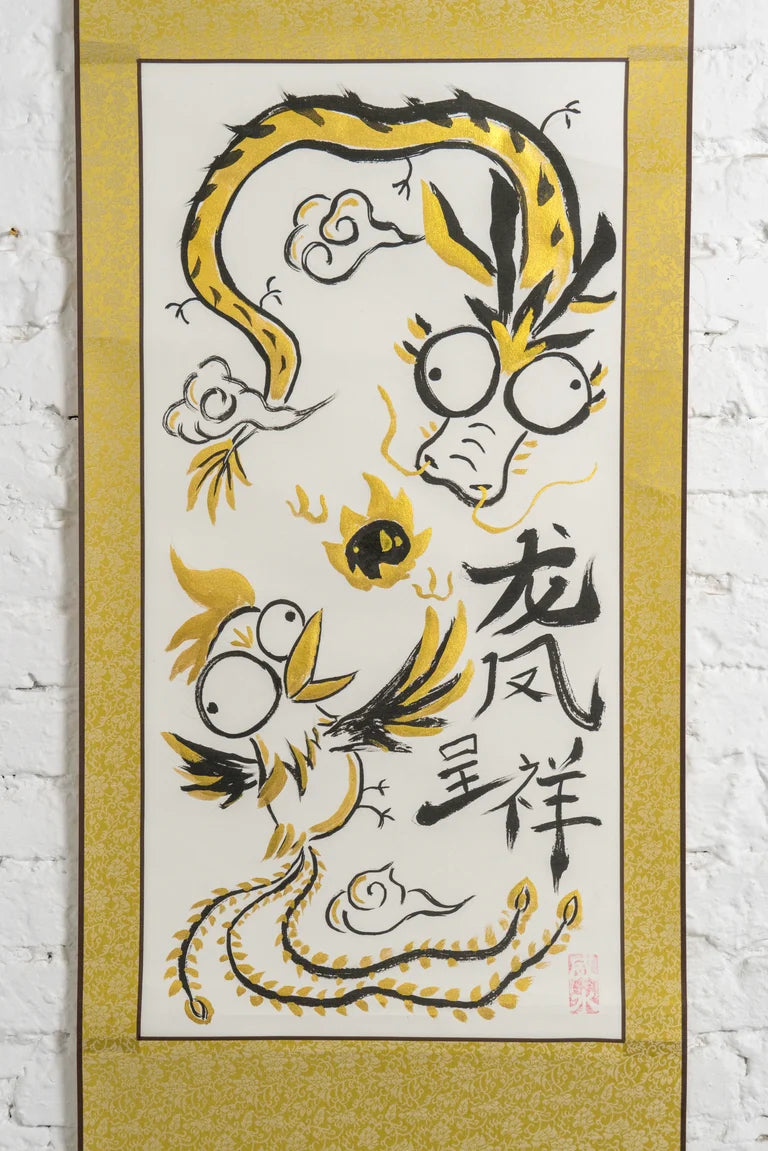 龙
凤
呈祥